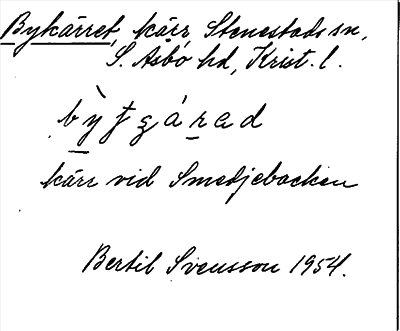 Bykärret, kärr, Stenestads sn,
S. Asbo hd, Krist. l.
kärr vid Smedjebacken
Bertil Svensson 1954.